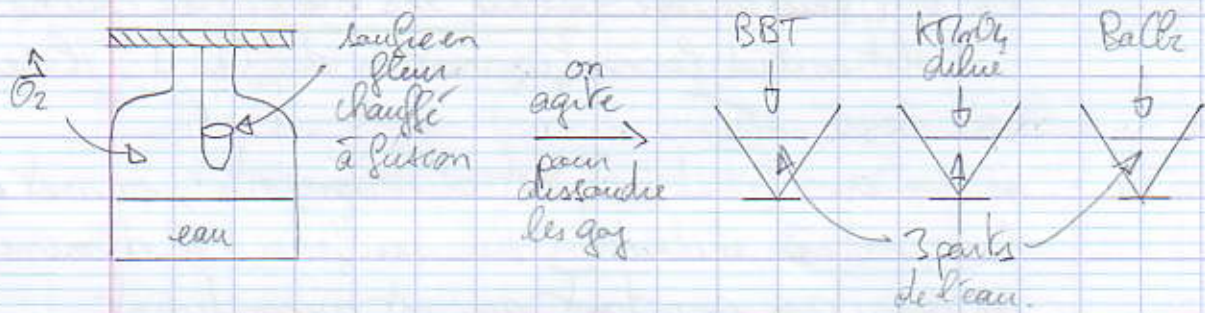 O₂
soufre en
fleur
chauffé
à fusion
eau
on
agite
pour
dissoudre
les gaz.
BBT
KMnO₄
dilué
BaCl₂
3 parts
de l'eau.